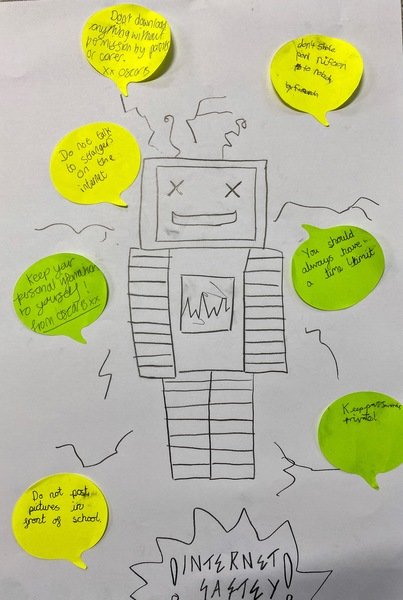 Don't download
anything without
permission by parents
or carer.
xx OSCAR B
don't share
to nobody
Do not talk
to strangers
on the
internet
You should
always have
a time limit
Keep your
personal information
to yourself!
from OSCAR B xx
WWW
Keep
private!
Do not post
pictures in
front of school.
INTERNET
SAFTEY